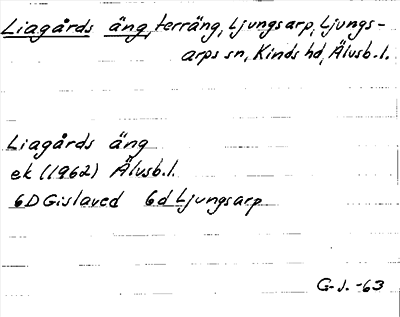 Liagårds äng, terräng, Ljungsarp, Ljungs-
arps sn, Kinds hd, Älvsb. l.
Liagårds äng
ek (1962) Älvsb. l.
6D Gislaved 6d Ljungsarp
G. J. -63